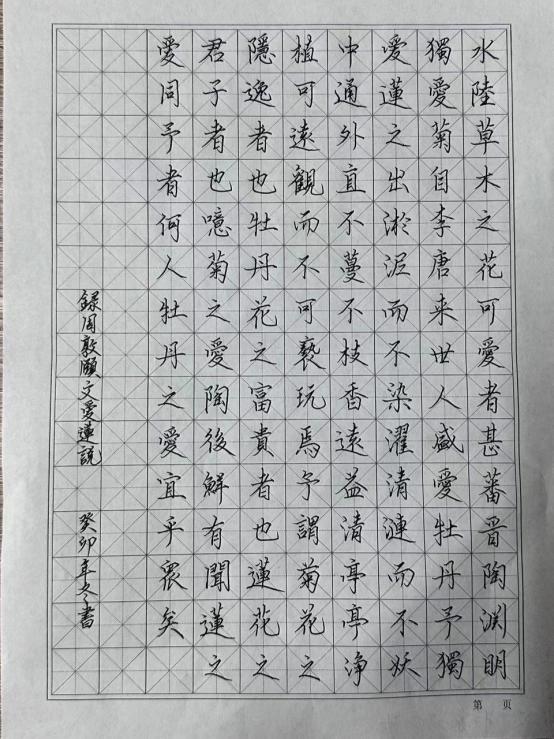 水陸草木之花可愛者甚蕃晋陶渊明
獨愛菊自李唐来世人盛愛牡丹予獨
愛蓮之出淤泥而不染濯清漣而不妖
中通外直不蔓不枝香遠益清亭亭净
植可遠觀而不可褻玩焉予謂菊花之
隱逸者也牡丹花之富貴者也蓮花之
君子者也噫菊之愛陶後鮮有聞蓮之
愛同予者何人牡丹之愛宜乎眾矣
録周敦頤文愛蓮説 癸卯年冬書
第 页